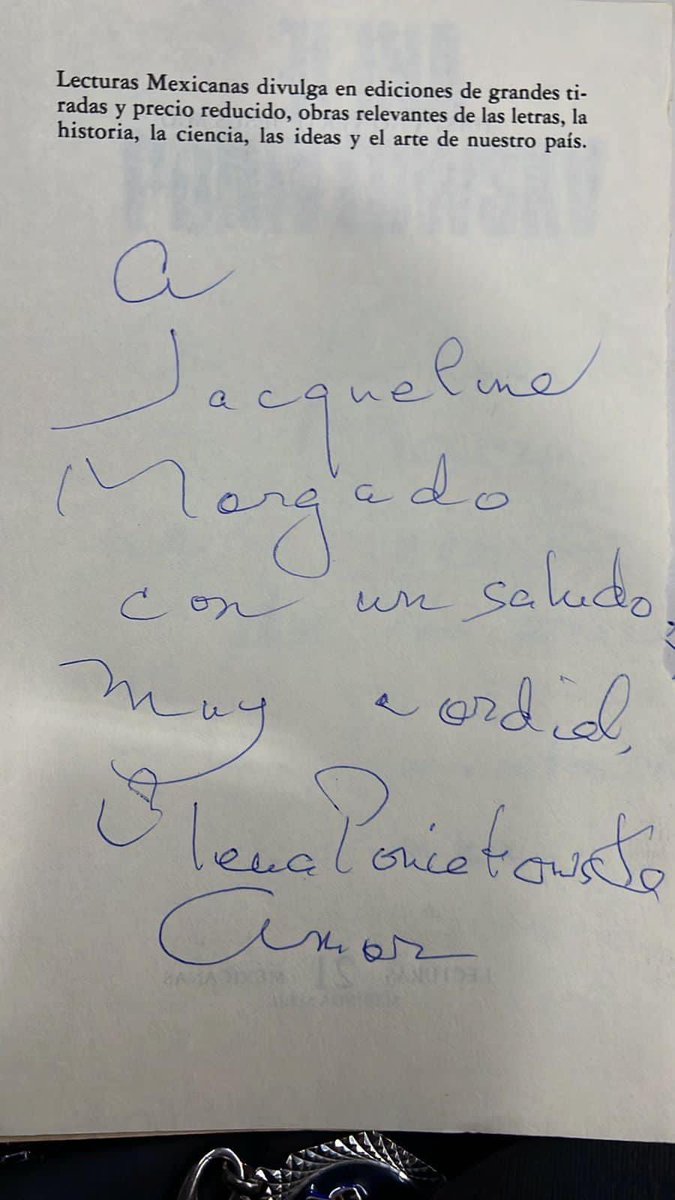 Lecturas Mexicanas divulga en ediciones de grandes ti-
radas y precio reducido, obras relevantes de las letras, la
historia, la ciencia, las ideas y el arte de nuestro país.
A
Jacqueline
Morgado
con un saludo
muy cordial,
Elena Poniatowska
Amor
LECTURAS 21 MEXICANAS